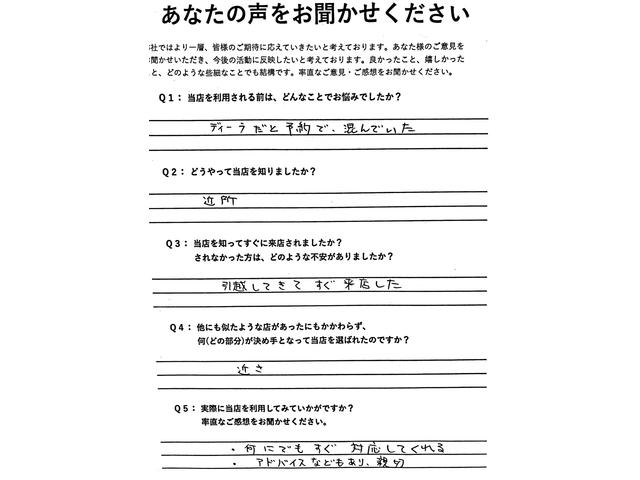 あなたの声をお聞かせください
社ではより一層、皆様のご期待に応えていきたいと考えております。あなた様のご意見を
聞かせいただき、今後の活動に反映したいと考えております。良かったこと、嬉しかった
と、どのような些細なことでも結構です。率直なご意見・ご感想をお聞かせください。
Q1：当店を利用される前は、どんなことでお悩みでしたか？
ディーラだと予約で、混んでいた
Q2：どうやって当店を知りましたか？
近所
Q3：当店を知ってすぐに来店されましたか？
されなかった方は、どのような不安がありましたか？
引越してきてすぐ来店した
Q4：他にも似たような店があったにもかかわらず、
何(どの部分)が決め手となって当店を選ばれたのですか？
近さ
Q5：実際に当店を利用してみていかがですか？
率直なご感想をお聞かせください。
・何にでもすぐ対応してくれる
・アドバイスなどもあり、親切